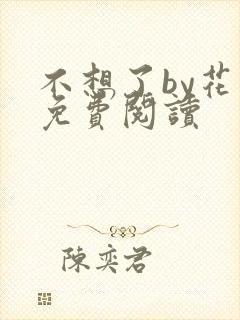 不想了by花
免費閱讀
陳奕君